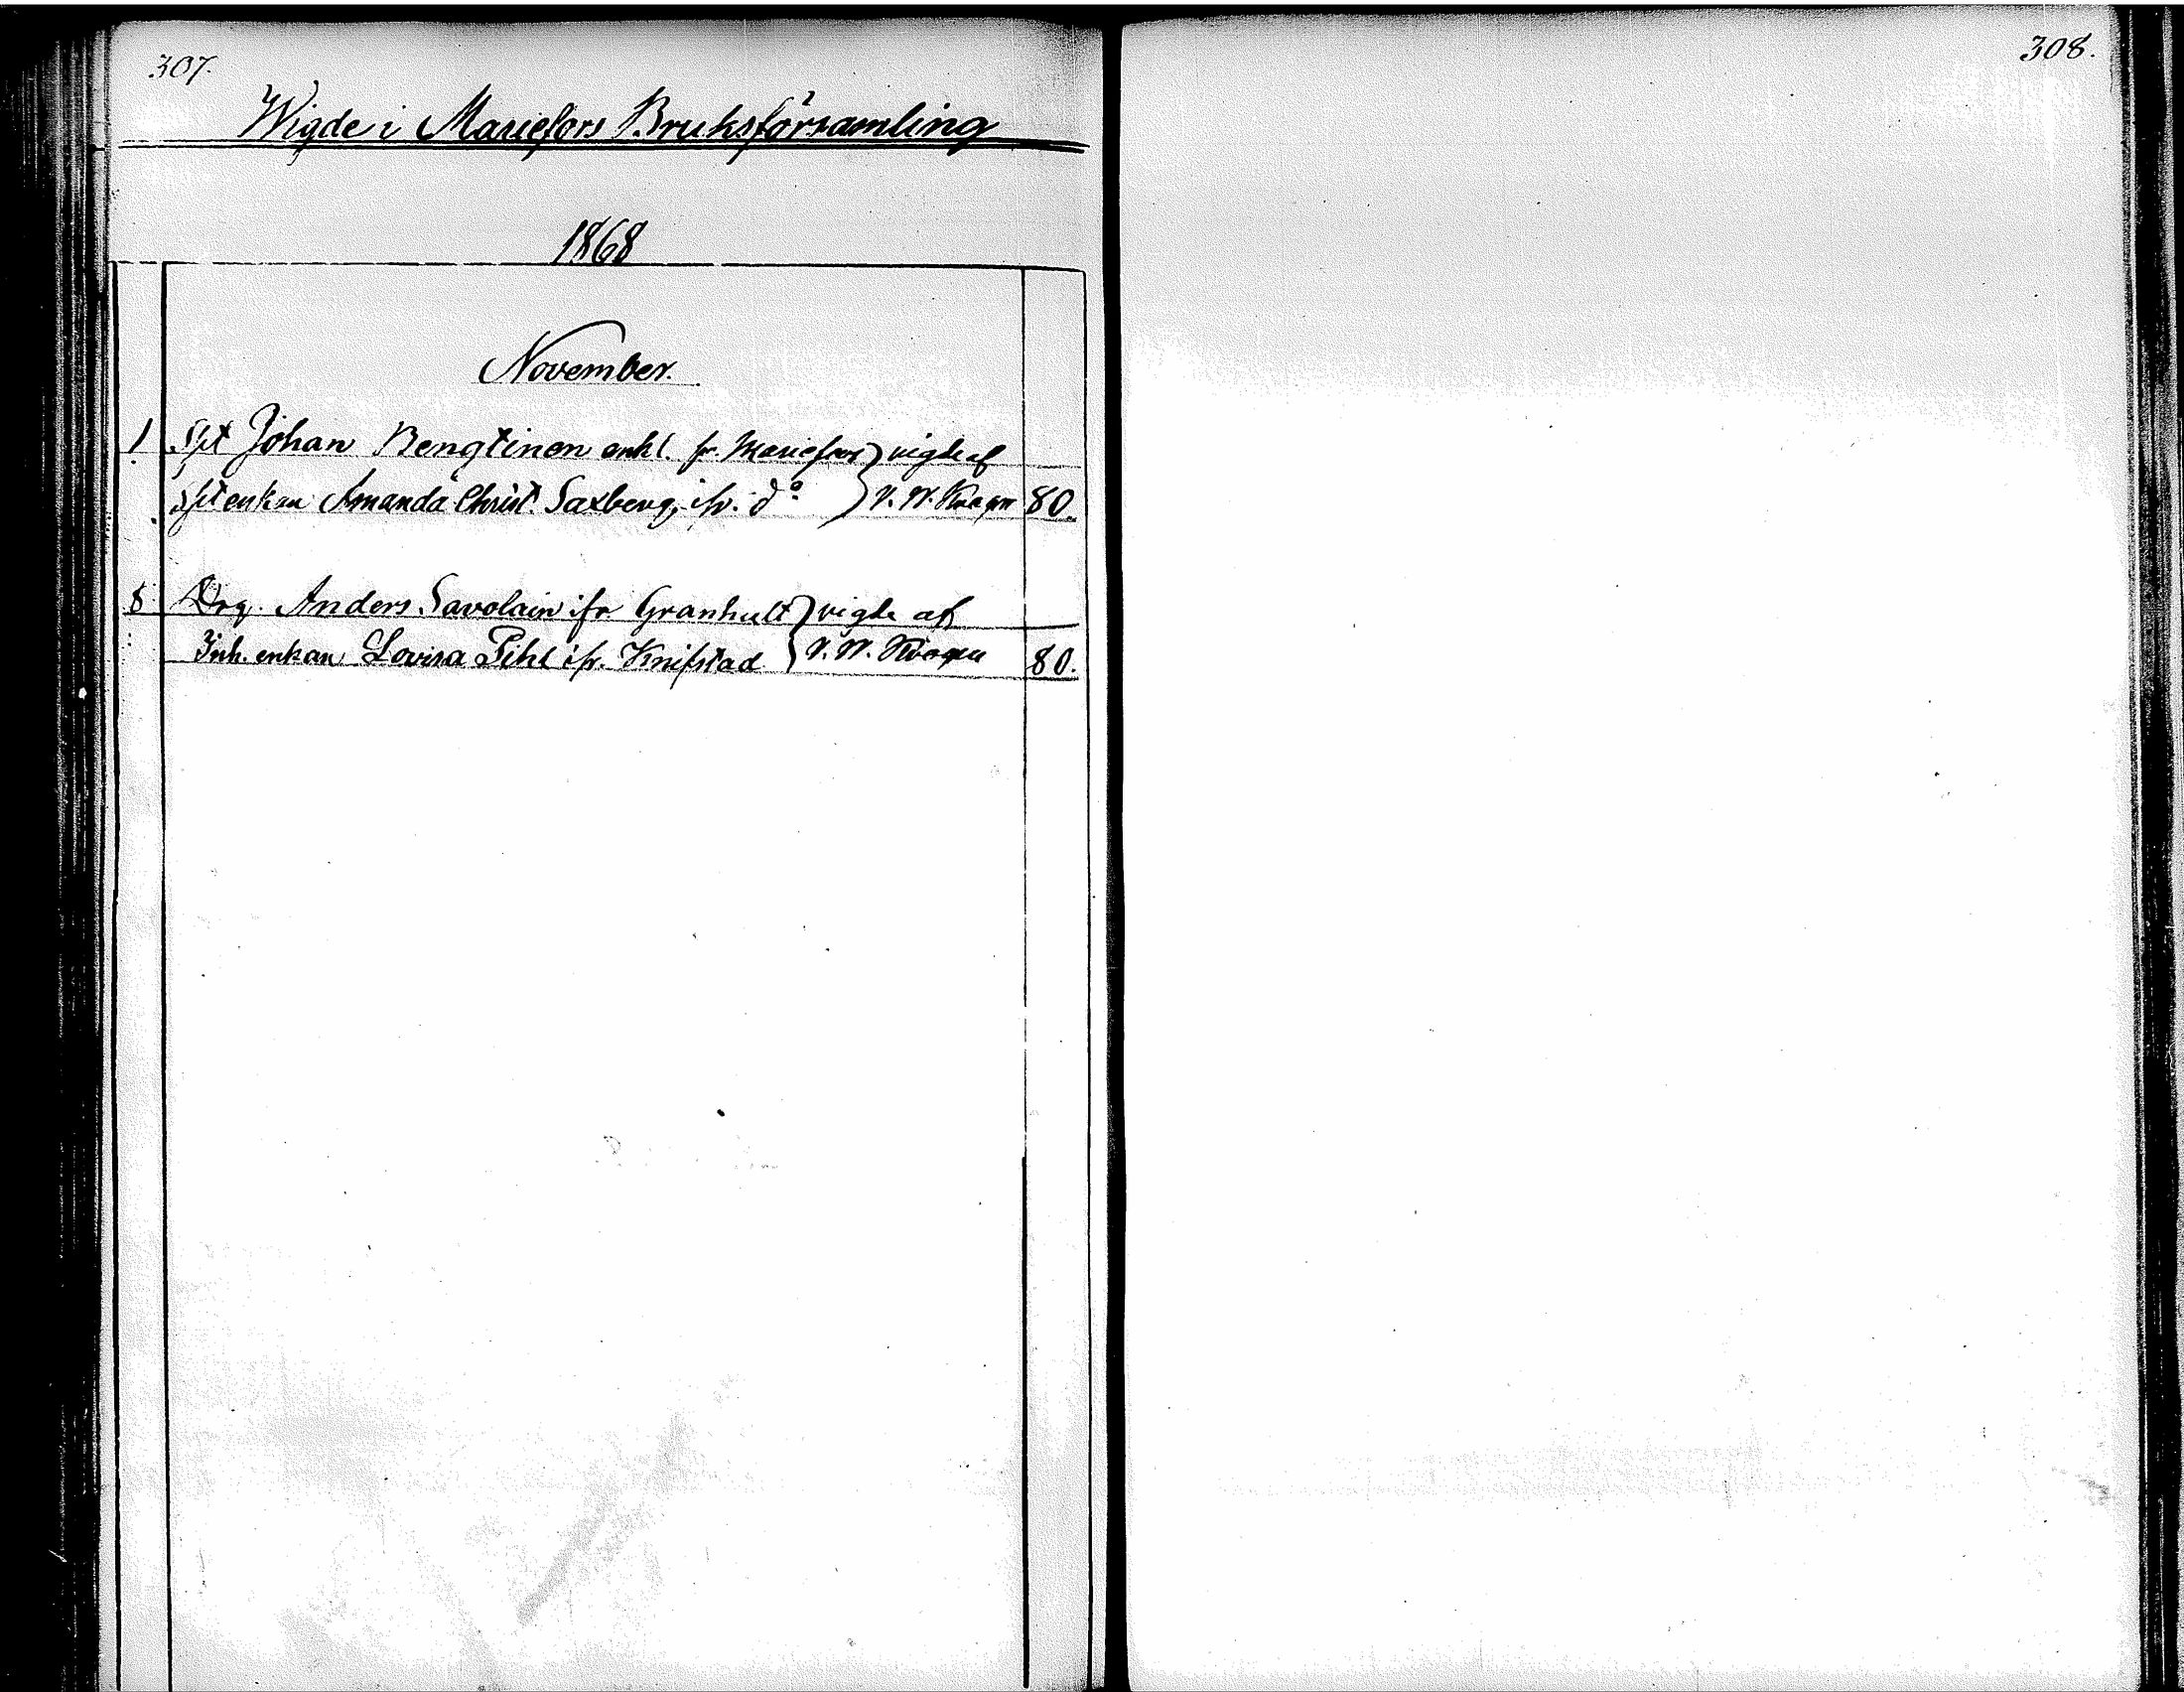 307.
308.
Wigde i Mariefors Bruksförsamling
1868
November.
1 Spt Johan Bengtinen enkl. fr. Mariefors } vigde af
Spt enkan Amanda Christ. Saxberg, ifr. do } V. W. 80.
8 Drg. Anders Savolain ifr Granhult } vigde af
Inh. enkan Lovisa Pihl ifr. Knifstad } V. W. 80.